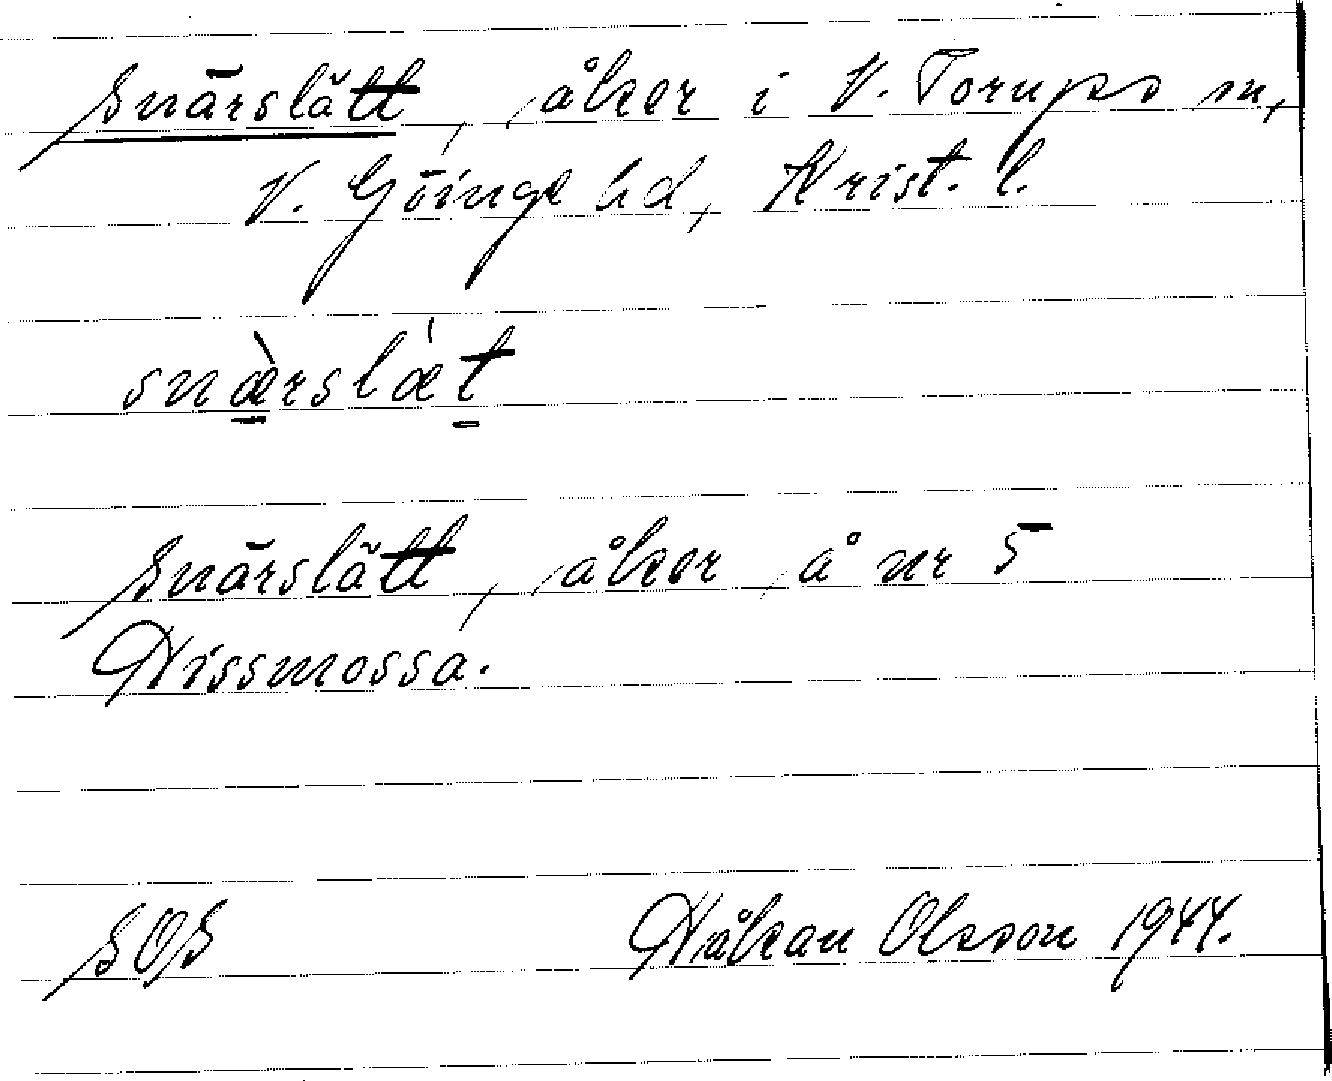 Snärslätt, åker i V. Torups sn,
V. Göinge hd, Krist. l.
snæ̀rslǽt
Snärslätt, åker å nr 5
Hissmossa.
SOS Håkan Olsson 1944.